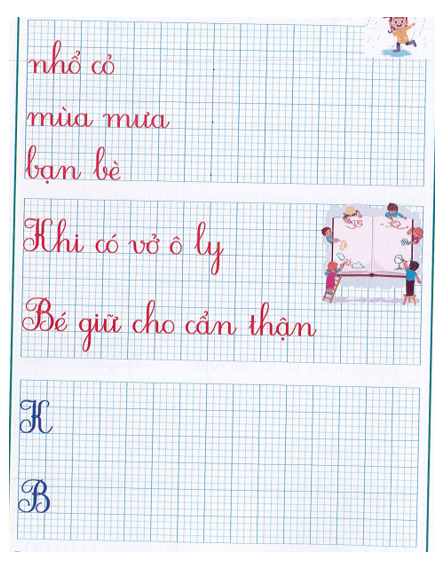 nhổ cỏ
mùa mưa
bạn bè
Khi có vở ô ly
Bé giữ cho cẩn thận
K
B